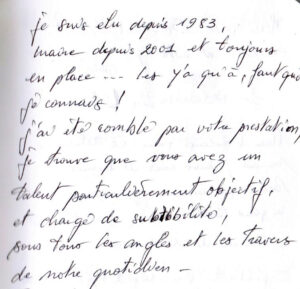 je suis élu depuis 1983,
maire depuis 2001 et toujours
en place ... les y'a qu'à, faut que
je connais !
j'ai été comblé par votre prestation,
je trouve que vous avez un
talent particulièrement objectif,
et chargé de subtibilité,
sous tous les angles et les travers
de notre quotidien -